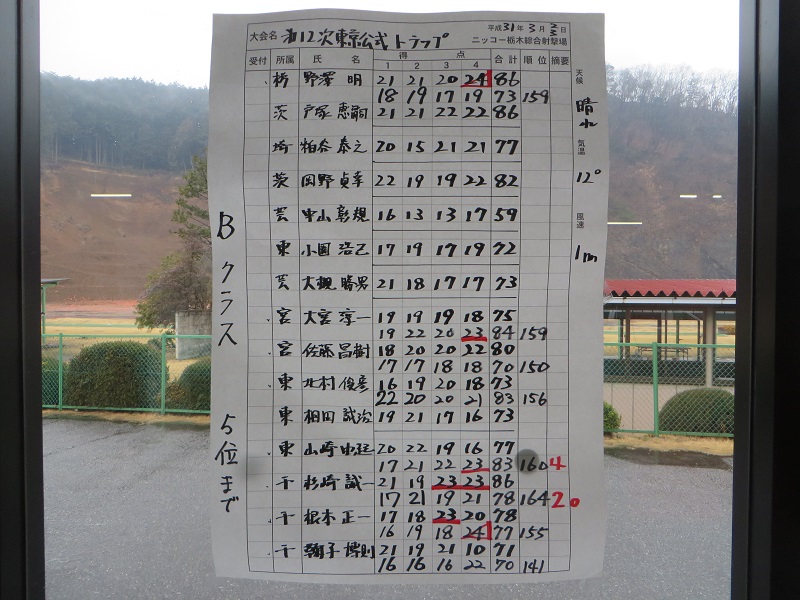 大会名 第12次東京公式トラップ 平成31年3月2日 3日
ニッコー栃木綜合射撃場
受付 所属 氏名 得点 合計 順位 摘要
1 2 3 4
栃 野澤 明 21 21 20 24 86
18 19 17 19 73 159
茨 戸塚 恵嗣 21 21 22 22 86
埼 柏奈 泰之 20 15 21 21 77
茨 岡野 貞幸 22 19 19 22 82
芸 中山 彰規 16 13 13 17 59
東 小国 浩己 17 19 17 19 72
芸 大槻 晴男 21 18 17 17 73
宮 大宮 淳一 19 19 19 18 75
19 22 20 23 84 159
宮 佐藤 昌樹 18 20 20 22 80
17 17 18 18 70 150
東 北村 俊彦 16 19 20 18 73
22 20 20 21 83 156
東 相田 誠治 19 21 17 16 73
東 山崎 20 22 19 16 77
17 21 22 23 83 160 4
千 杉崎 誠一 21 19 23 23 86
17 21 19 21 78 164 20
千 根本 正一 17 18 23 20 78
16 19 18 24 77 155
千 鞠子 博則 21 19 21 10 71
16 16 16 22 70 141
天候
晴れ
気温
12°
風速
1m
Bクラス 5位まで